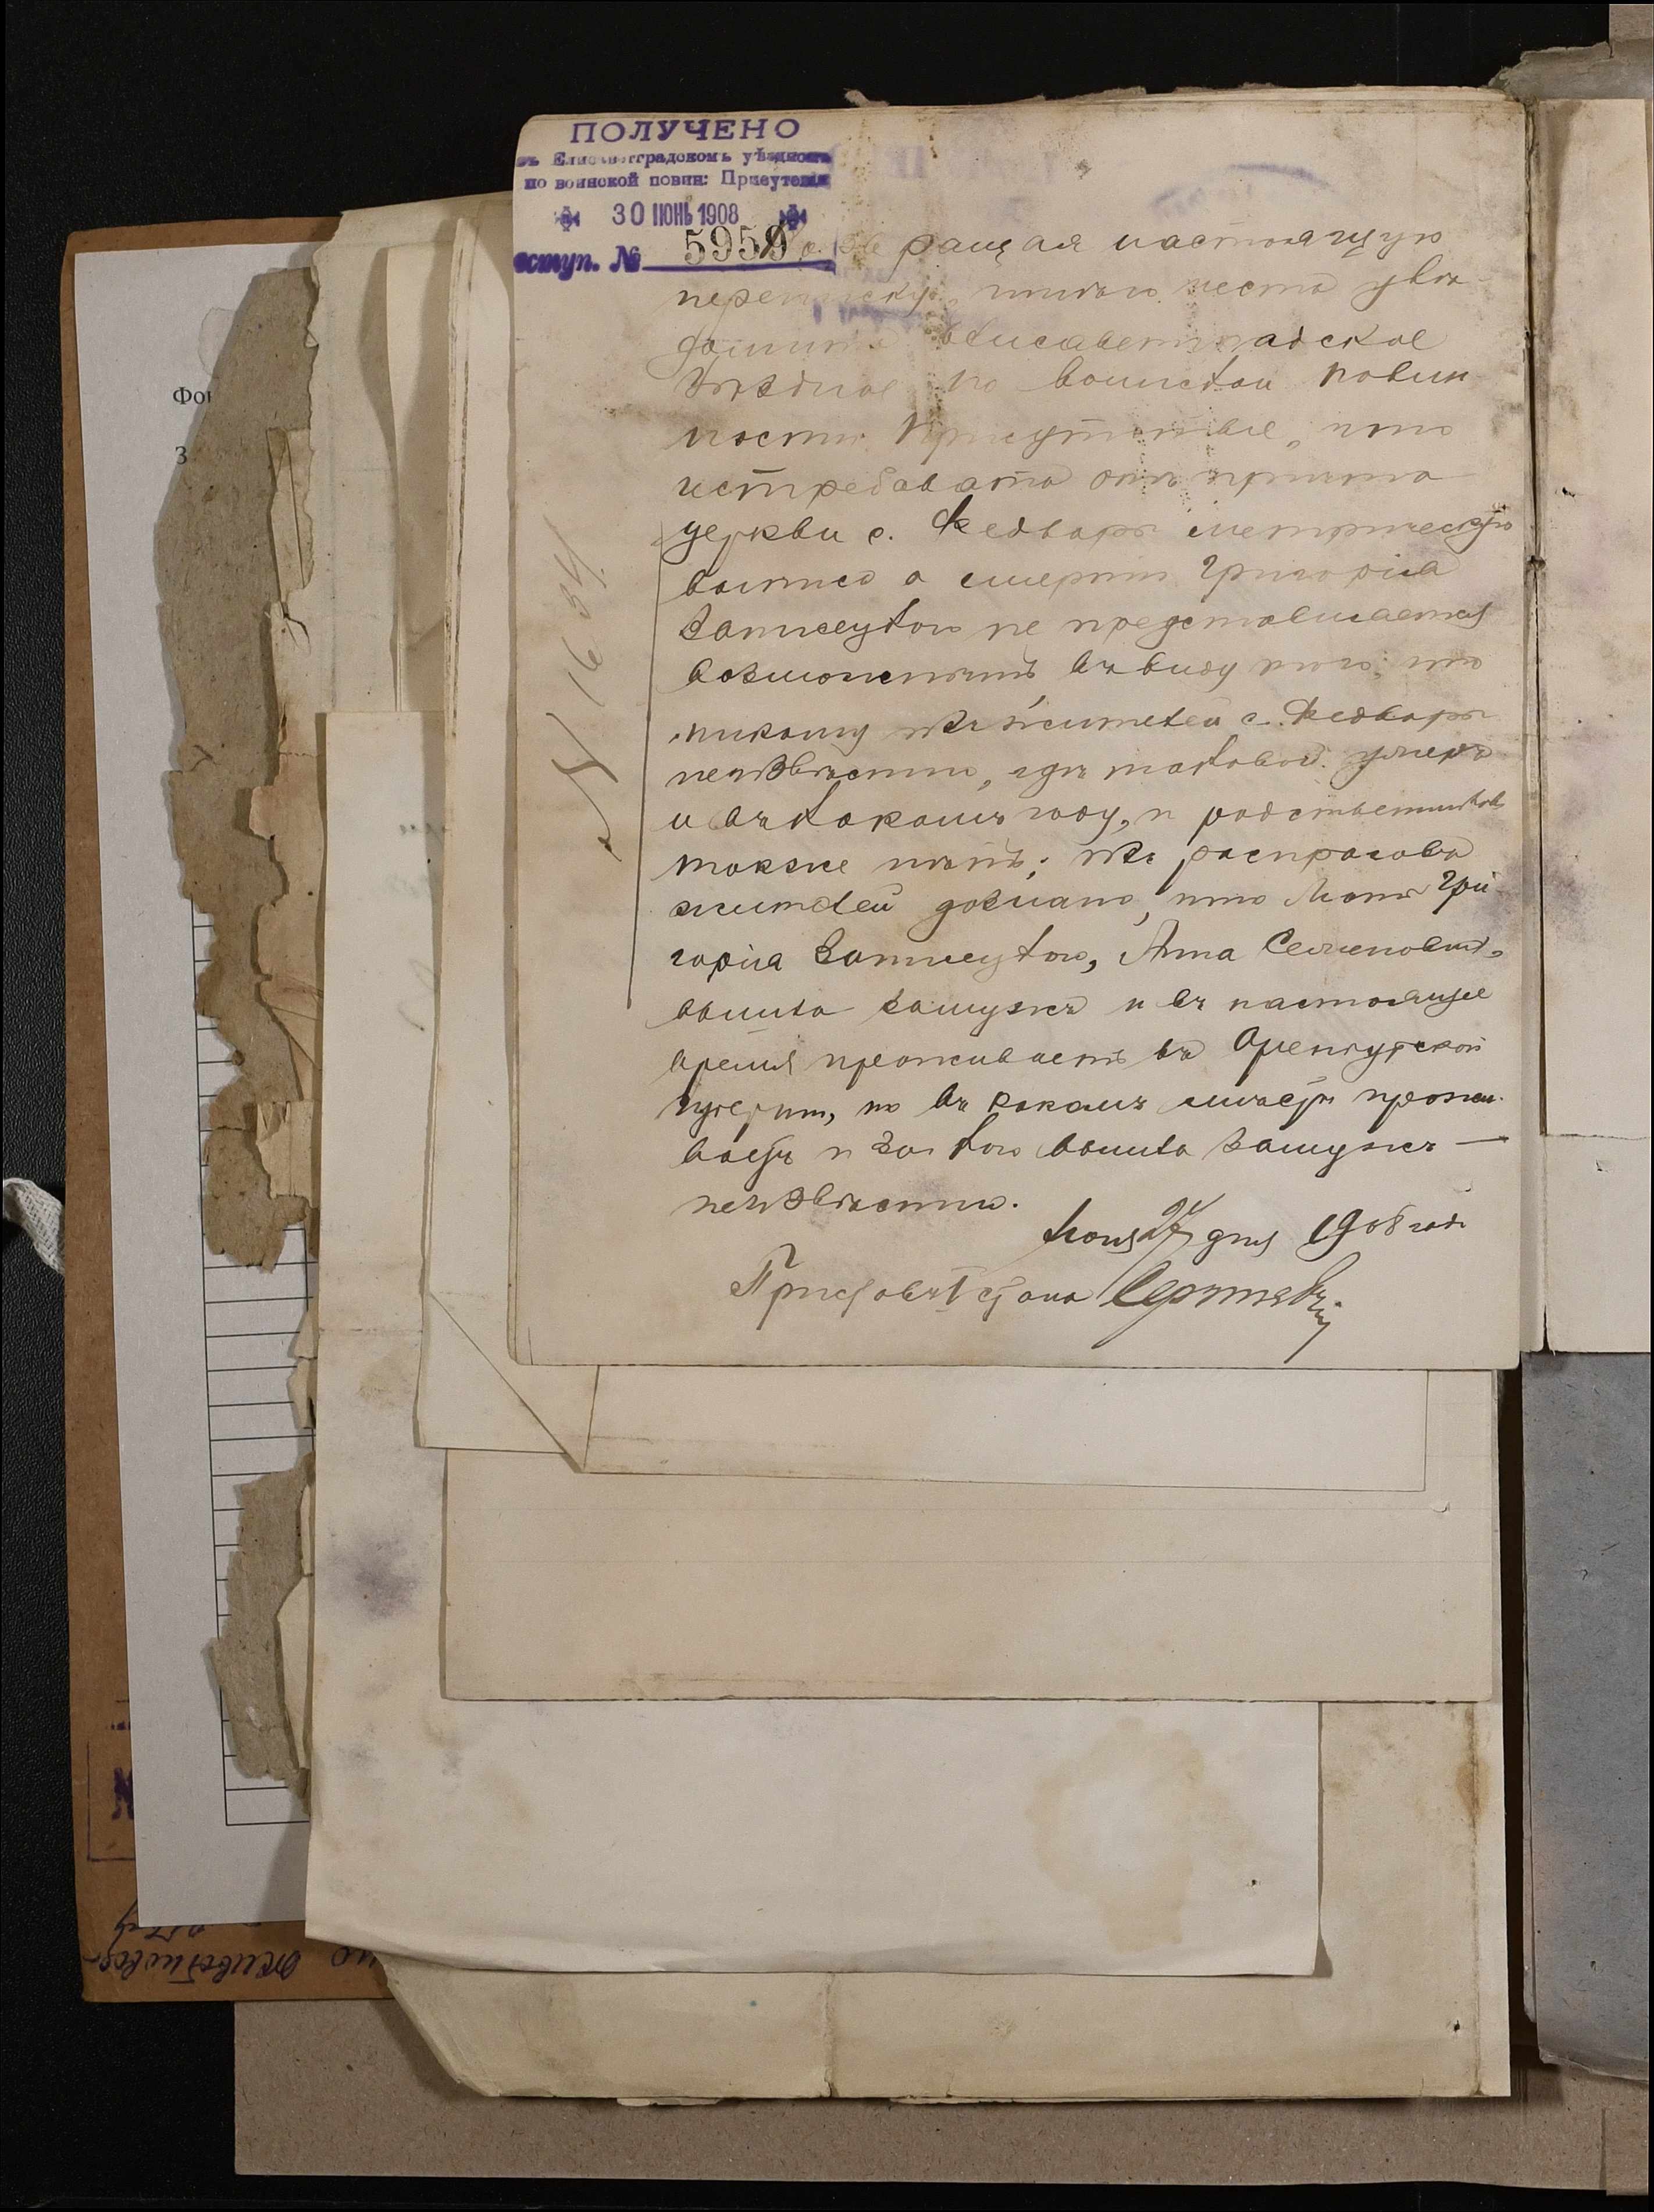 ПОЛУЧЕНО
въ Елисаветградскомъ уѣздномъ
по воинской повин: Присутствіи
30 ІЮНЬ 1908
поступ. № 5959
ращая настоящую
переписку, имѣю честь увѣ-
домить Елисаветградское
Уѣздное по воинской повин-
ности Присутствіе, что
истребовать отъ причта
церкви с. Федвары метрическую
выпись о смерти Григорія
не представляется
возможнымъ, въ виду того что
никому изъ жителей с. Федвары
неизвѣстно, гдѣ таковой умеръ
и въ какомъ году, и родственниковъ
также нѣтъ; изъ распросовъ
жителей дознано, что Мать Гри-
горія Анна Семеновна,
вышла замужъ и въ настоящее
время проживаетъ въ Оренбургской
губерніи, но въ какомъ мѣстѣ прожи-
ваетъ и за кого вышла замужъ —
неизвѣстно.
Іюня 27 дня 1908 года
Приставъ 1 стана
№ 1634
Фо
З